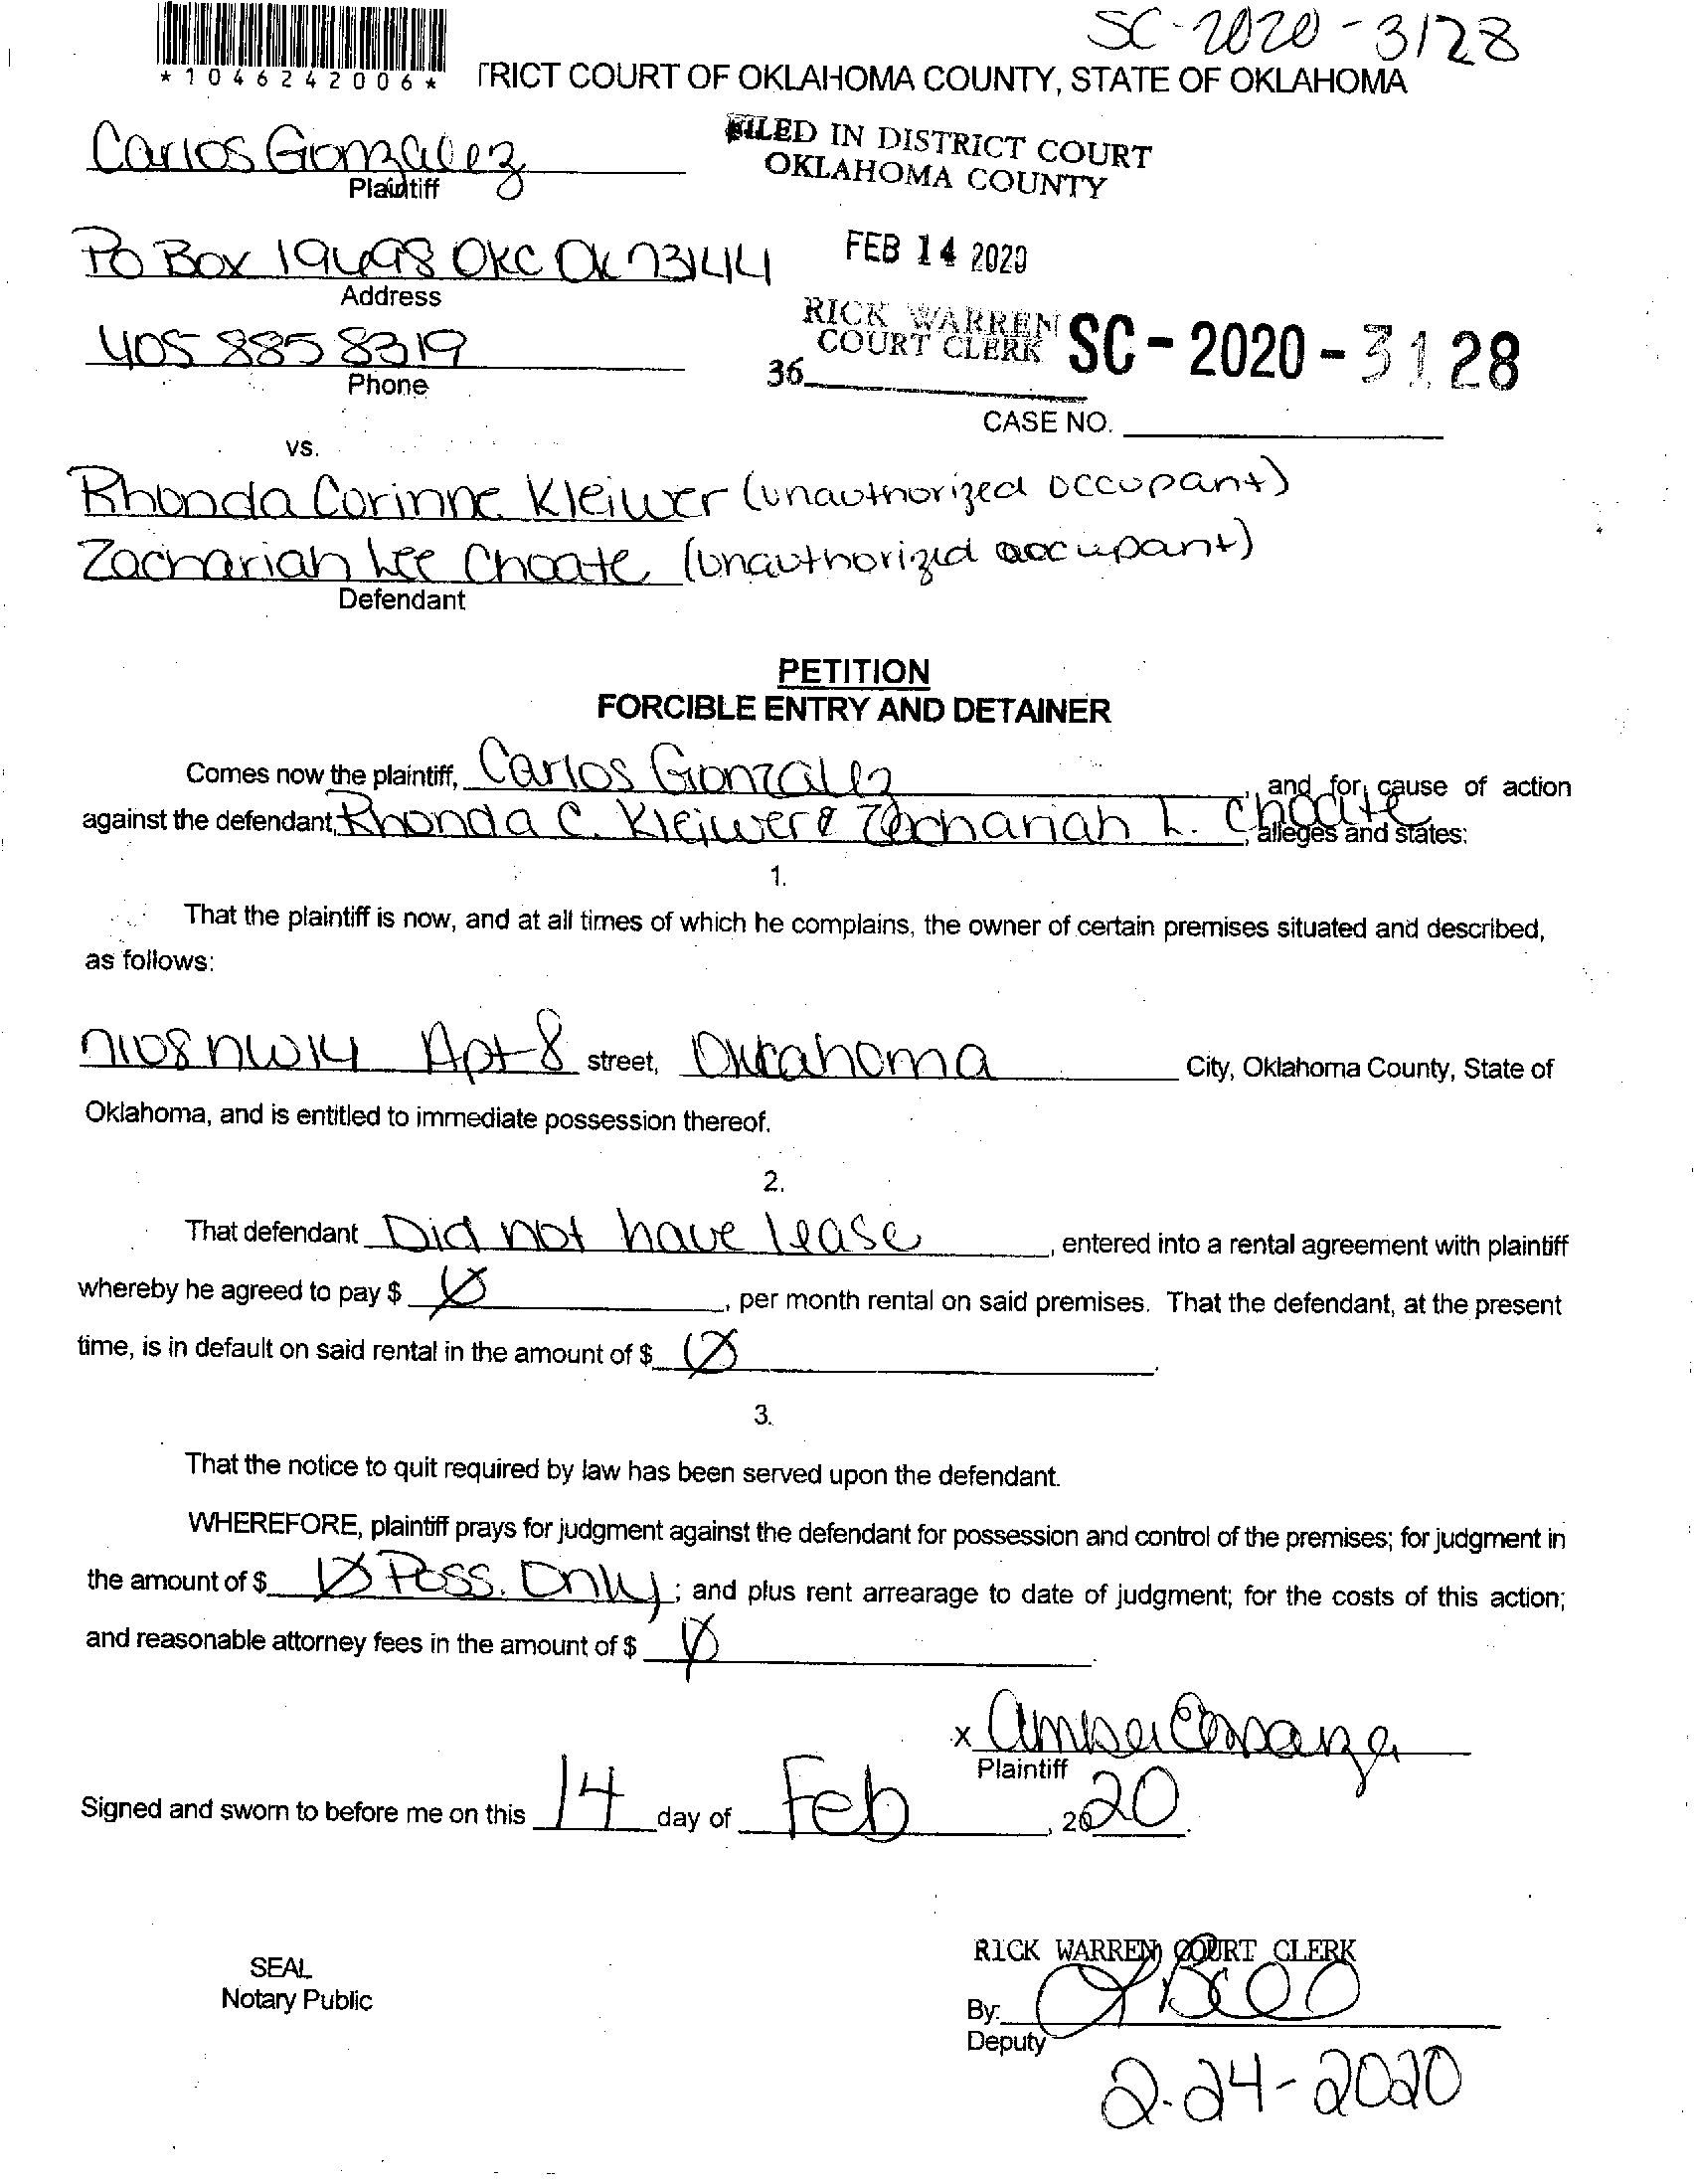 SC-2020-3128
*1046242006* TRICT COURT OF OKLAHOMA COUNTY, STATE OF OKLAHOMA
Carlos Gonzalez
Plaintiff
FILED IN DISTRICT COURT
OKLAHOMA COUNTY
PO Box 19498 OKC OK 73144
Address
FEB 14 2020
405 885 8319
Phone
RICK WARREN
COURT CLERK
SC-2020-3128
36
CASE NO.
vs.
Rhonda Corinne Kleiwer (unauthorized occupant)
Zachariah Lee Choate (unauthorized occupant)
Defendant
PETITION
FORCIBLE ENTRY AND DETAINER
Comes now the plaintiff, Carlos Gonzalez, and for cause of action
against the defendant, Rhonda C. Kleiwer & Zachariah L. Choate, alleges and states:
1.
That the plaintiff is now, and at all times of which he complains, the owner of certain premises situated and described,
as follows:
7108 NW 14 Apt 8 street, Oklahoma City, Oklahoma County, State of
Oklahoma, and is entitled to immediate possession thereof.
2.
That defendant Did not have lease, entered into a rental agreement with plaintiff
whereby he agreed to pay $ Ø, per month rental on said premises. That the defendant, at the present
time, is in default on said rental in the amount of $ Ø.
3.
That the notice to quit required by law has been served upon the defendant.
WHEREFORE, plaintiff prays for judgment against the defendant for possession and control of the premises; for judgment in
the amount of $ Ø Poss. Only; and plus rent arrearage to date of judgment; for the costs of this action;
and reasonable attorney fees in the amount of $ Ø.
x
Plaintiff
Signed and sworn to before me on this 14 day of Feb, 2020.
SEAL
Notary Public
RICK WARREN, COURT CLERK
By:
Deputy
2-24-2020